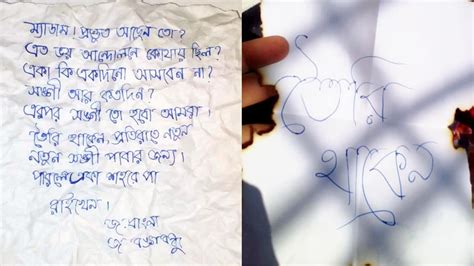 ম্যাডাম। প্রস্তুত আছেন তো?
এত ভয় আন্দোলনে কোথায় ছিল?
একা কি একদিনো আসবেন না?
সঙ্গী আর কতদিন?
এরপর সঙ্গী তো হবো আমরা।
তৈরি থাকেন, প্রতিরাতে নতুন
নতুন সঙ্গী পাবার জন্য।
পারলে একা শহরে পা
রাইখেন।
জয় বাংলা
জয় বঙ্গবন্ধু
তৈরি
থাকেন